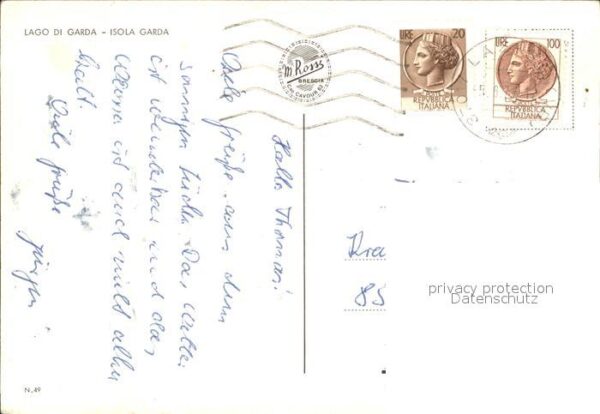 LAGO DI GARDA - ISOLA GARDA
M. Rossi
BRESCIA
CAVOUR
LIRE 20
REPVBBLICA
ITALIANA
LIRE 100
REPVBBLICA
ITALIANA
Hallo Thomas!
Viele Grüße aus dem
sonnigen Süden. Das Wetter
ist wunderbar und das
Wasser ist auch nicht allzu
kalt.
Viele Grüße
Jürgen
85
privacy protection
Datenschutz
N. 49